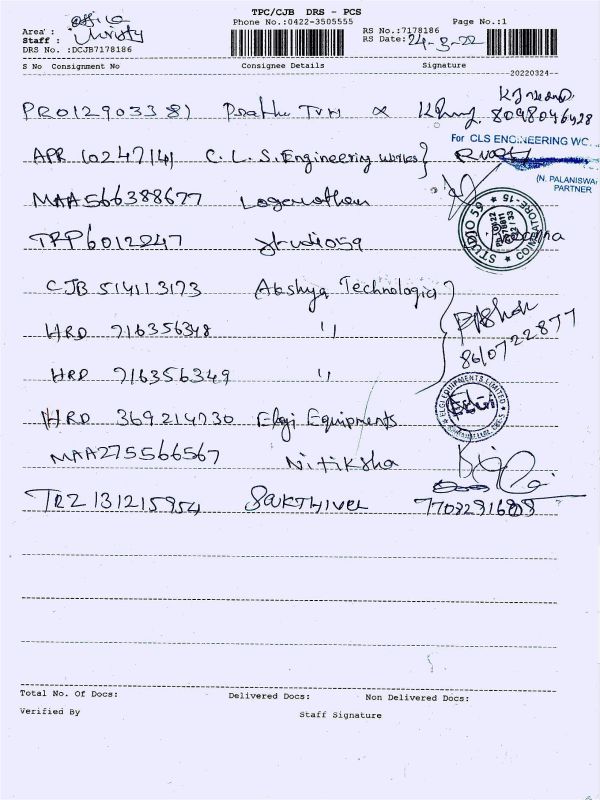 TPC/CJB DRS - PCS
Area : office Phone No.:0422-3505555 RS No.:7178186 Page No.:1
Staff : Christy RS Date: 24-3-22
DRS No. :DCJB7178186
S No Consignment No Consignee Details Signature
20220324--
PRO129033381 Prabhu TVH 8098046428
For CLS ENGINEERING WO
APR 10247141 C. L. S. Engineering works
(N. PALANISWA
PARTNER
MAA566388677 Loganathan
TRP6012247 Studio59 STUDIO 59 COIMBATORE-15
CJB 514113173 Akshya Technologies
HRD 716356348 "
8610722877
HRD 716356349 "
HRD 369214730 Elgi Equipments ELGI EQUIPMENTS LIMITED
MAA275566567 Nitiksha
TRZ 131215954 SAKTHIVEL 7708291608
Total No. Of Docs: Delivered Docs: Non Delivered Docs:
Verified By Staff Signature